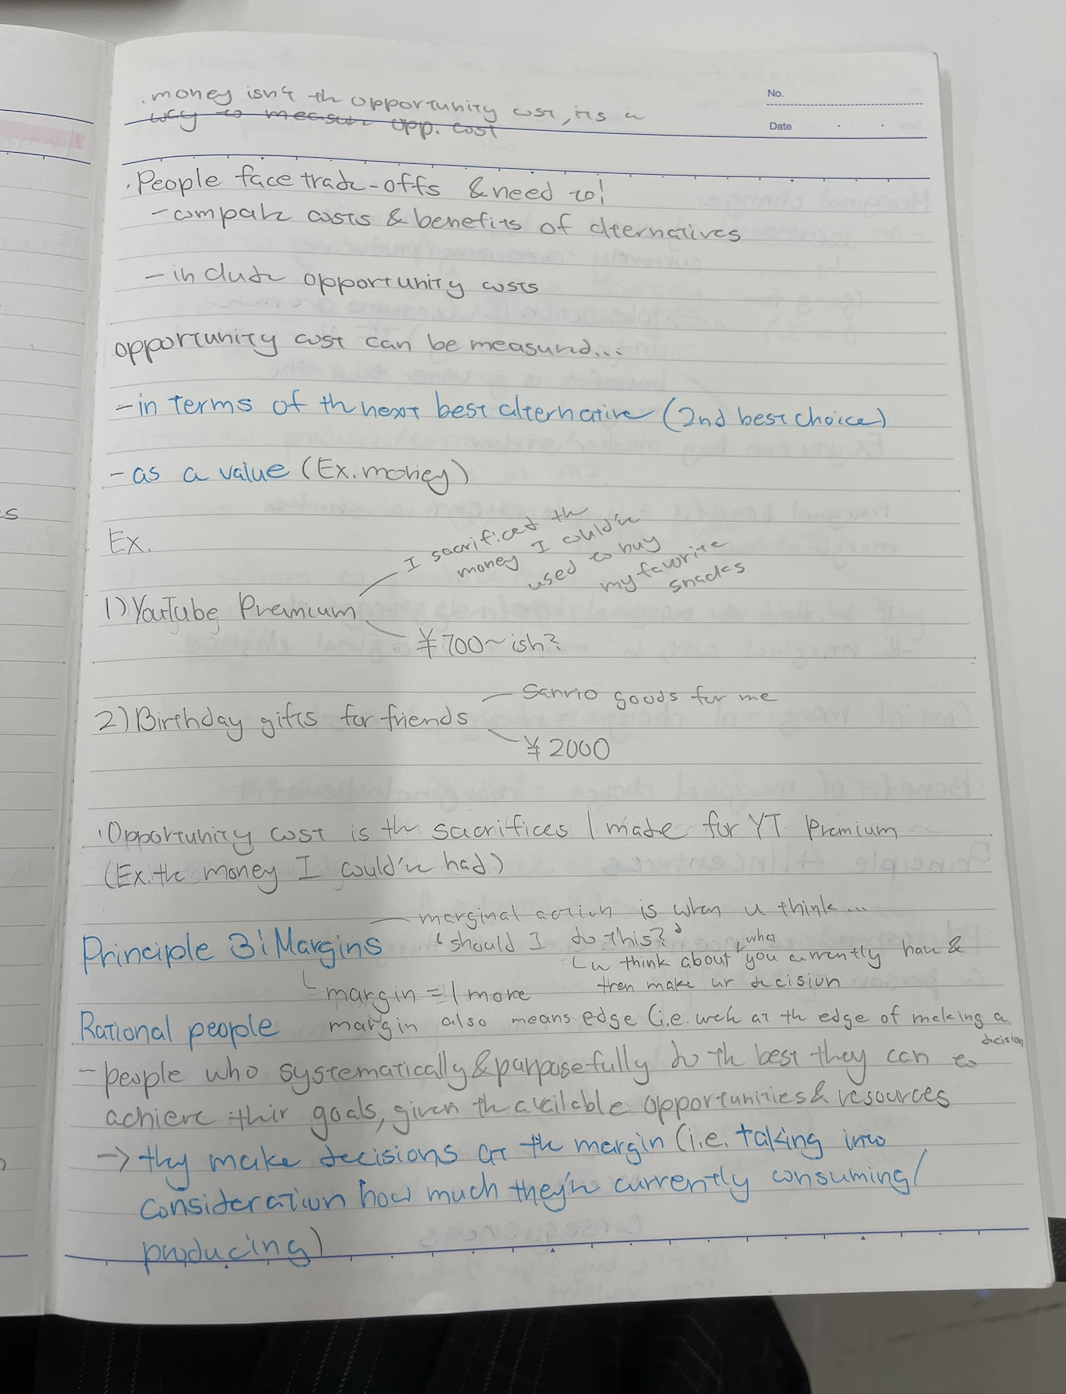 . money isn't th opportunity cost, its a
way to measure opp. cost
No.
Date
· People face trade-offs & need to!
- compare costs & benefits of alternatives
- include opportunity costs
opportunity cost can be measured...
- in terms of th next best alternative (2nd best choice)
- as a value (Ex. money)
Ex.
I sacrificed th
money I could've
used to buy
my favorite
snacks
1) YouTube Premium
¥700~ish?
Sanrio goods for me
2) Birthday gifts for friends
¥2000
· Opportunity cost is th sacrifices I made for YT Premium
(Ex. the money I could've had)
marginal action is when u think...
Principle 3: Margins
"should I do this?"
what
u think about you currently have &
then make ur decision
margin = 1 more
Rational people
margin also means edge (i.e. we'r at th edge of making a
decision
- people who systematically & purposefully do th best they can to
achieve their goals, given th available opportunities & resources
→ they make decisions at th margin (i.e. taking into
consideration how much they'r currently consuming/
producing)
s